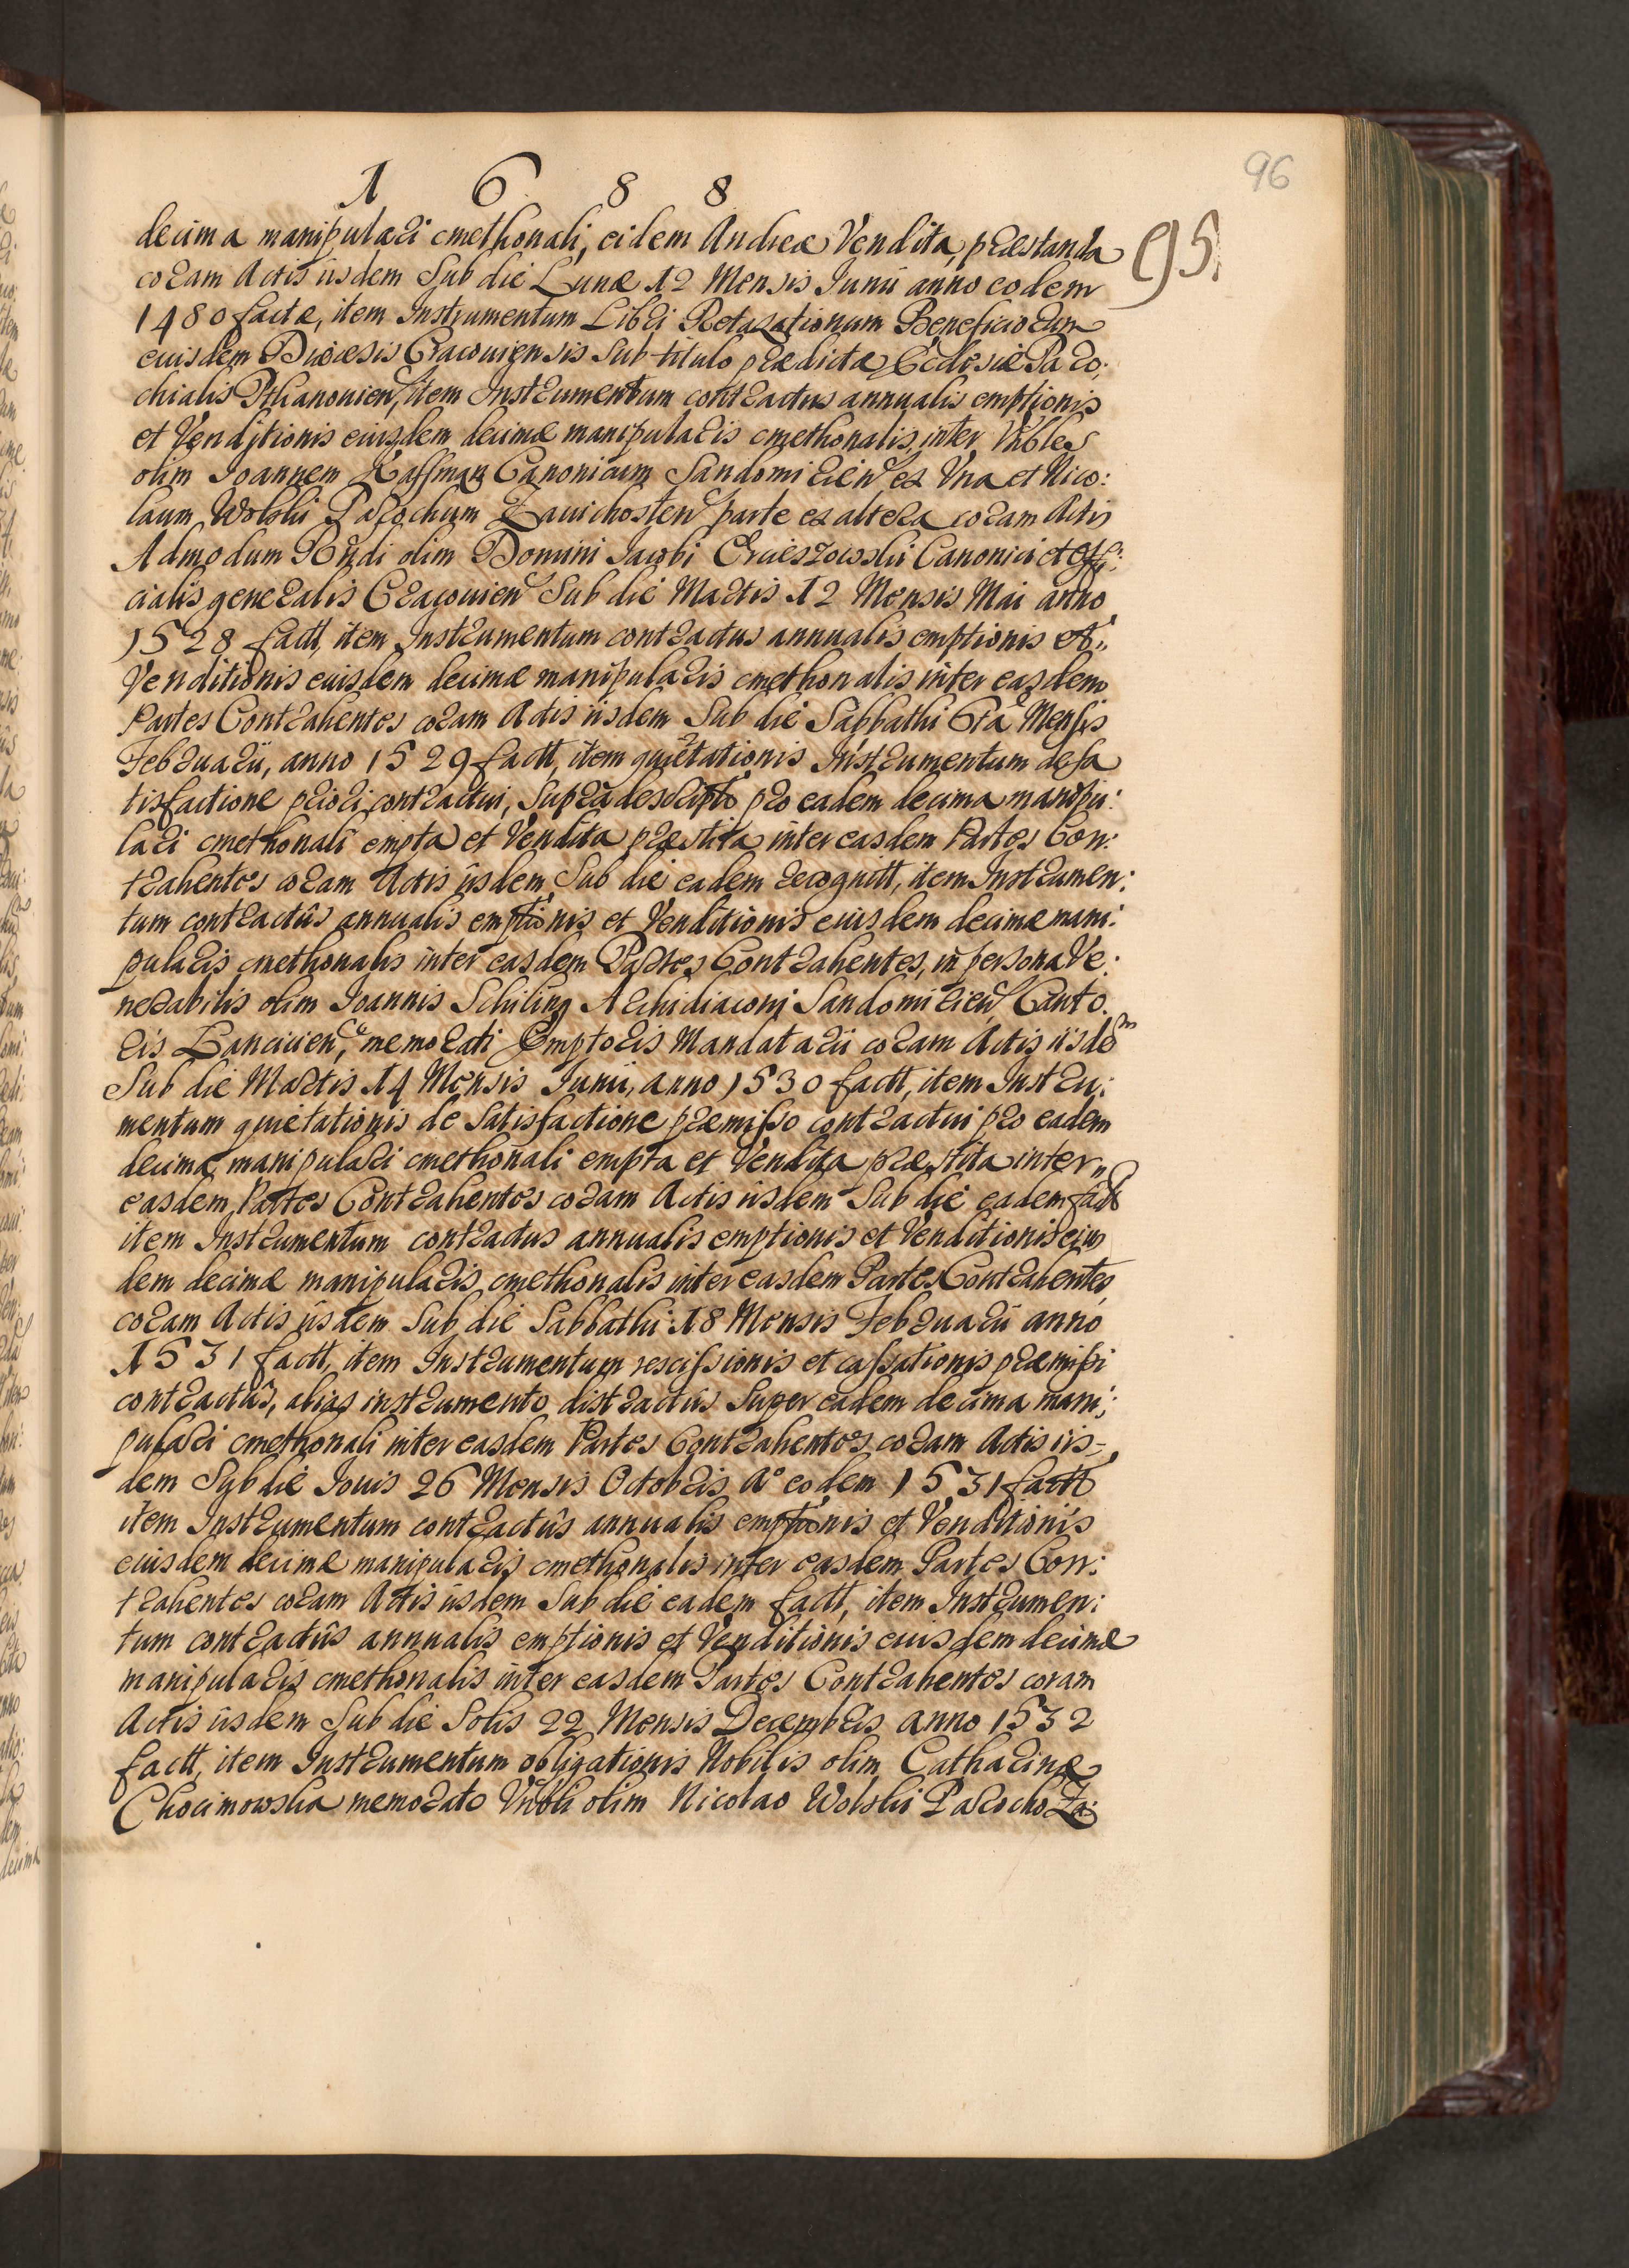 96
1 6 8 8
95.
decima manipulari cmethonali, eidem Andreæ Vendita, præstanda
coram Actis iisdem Sub die Lunæ 12 Mensis Iunii anno eodem
1480 factæ, item Instrumentum Libri Retaxationum Beneficiorum
euisdem Diœcesis Cracouiensis sub titulo prædictæ Ecclesiæ Paro:
chialis Pthanouien, item Instrumentum contractus annualis emptionis
et Venditionis euisdem decimæ manipularis cmethonalis, inter Vrbles
olim Ioannem Kaffman Canonicum Sandomirien ex Vna et Nico:
laum Wolski Parochum Zauichosten parte ex altera coram Actis
Admodum Rndi olim Domini Iacobi Ercieszowski Canonici et Offi:
cialis generalis Cracouien Sub die Martis 12 Mensis Mai anno
1528 factt, item Instrumentum contractus annualis emptionis et
Venditionis euisdem decimæ manipularis cmethonalis inter easdem
Partes Contrahentes coram Actis iisdem Sub die Sabbathi 6ta Mensis
Februarii, anno 1529 factt, item quietationis Instrumentum de sa
tisfactione priori contractui, supra descripto pro eadem decima manipu:
lari cmethonali empta et Vendita præstita inter easdem Partes Con:
trahentes coram Actis iisdem Sub die eadem recognitt, item Instrumen:
tum contractûs annualis emptionis et Venditionis euisdem decimæ mani:
pularis cmethonalis inter easdem Partes Contrahentes, in persona Ve:
nerabilis olim Ioannis Schiling Archidiaconi Sandomirien, Canto:
ris Lancicien, memorati Emptoris Mandatarii coram Actis iisdem
Sub die Martis 14 Mensis Iunii, anno 1530 factt, item Instru:
mentum quietationis de Satisfactione præmisso contractui pro eadem
decima manipulari cmethonali empta et Vendita præstita inter
easdem Partes Contrahentes coram Actis iisdem Sub die eadem factt
item Instrumentum contractus annualis emptionis et Venditionis eius
dem decimæ manipularis cmethonalis inter easdem Partes Contrahentes,
coram Actis iisdem Sub die Sabbathi 18 Mensis Februarii anno
1531 factt, item Instrumentum rescissionis et cassationis præmissi
contractûs, alias instrumento distractûs Super eadem decima mani:
pulari cmethonali inter easdem Partes Contrahentes coram Actis iis-
dem Sub die Iouis 26 Mensis Octobris Aº eodem 1531 factt
item Instrumentum contractûs annualis emptionis et Venditionis
euisdem decimæ manipularis cmethonalis inter easdem Partes Con:
trahentes coram Actis iisdem Sub die eadem factt, item Instrumen:
tum contractûs annualis emptionis et Venditionis euisdem decimæ
manipularis cmethonalis inter easdem Partes Contrahentes coram
Actis iisdem Sub die Solis 22 Mensis Decembris anno 1532
factt, item Instrumentum obligationis Nobilis olim Catharinæ
Chocimowska memorato Vrbli olim Nicolao Wolski Parocho Za: